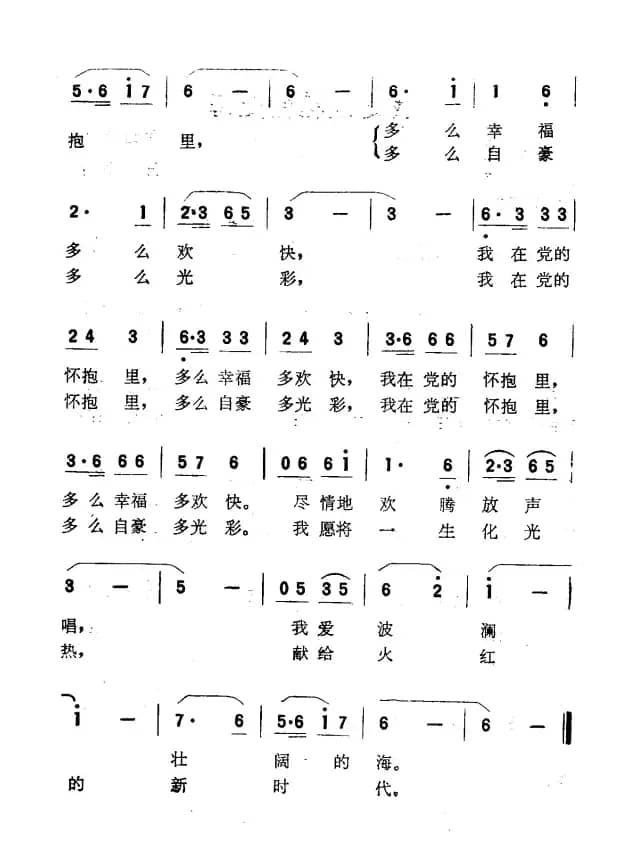 5·6 i7 | 6 — | 6 — | 6· i | 1 6
抱 里， { 多 么 幸 福
多 么 自 豪
2· 1 | 2·3 65 | 3 — | 3 — | 6·3 33
多 么 欢 快， 我 在 党的
多 么 光 彩， 我 在 党的
24 3 | 6·3 33 | 24 3 | 3·6 66 | 57 6
怀抱 里， 多么 幸福 多欢 快， 我在 党的 怀抱 里，
怀抱 里， 多么 自豪 多光 彩， 我在 党的 怀抱 里，
3·6 66 | 57 6 | 06 6i | 1· 6 | 2·3 65
多 么 幸福 多欢 快。 尽 情地 欢 腾 放 声
多 么 自豪 多光 彩。 我 愿将 一 生 化 光
3 — | 5 — | 05 35 | 6 2 | i —
唱， 我 爱 波 澜
热， 献给 火 红
i — | 7· 6 | 5·6 i7 | 6 — | 6 — ‖
壮 阔 的 海。
的 新 时 代。